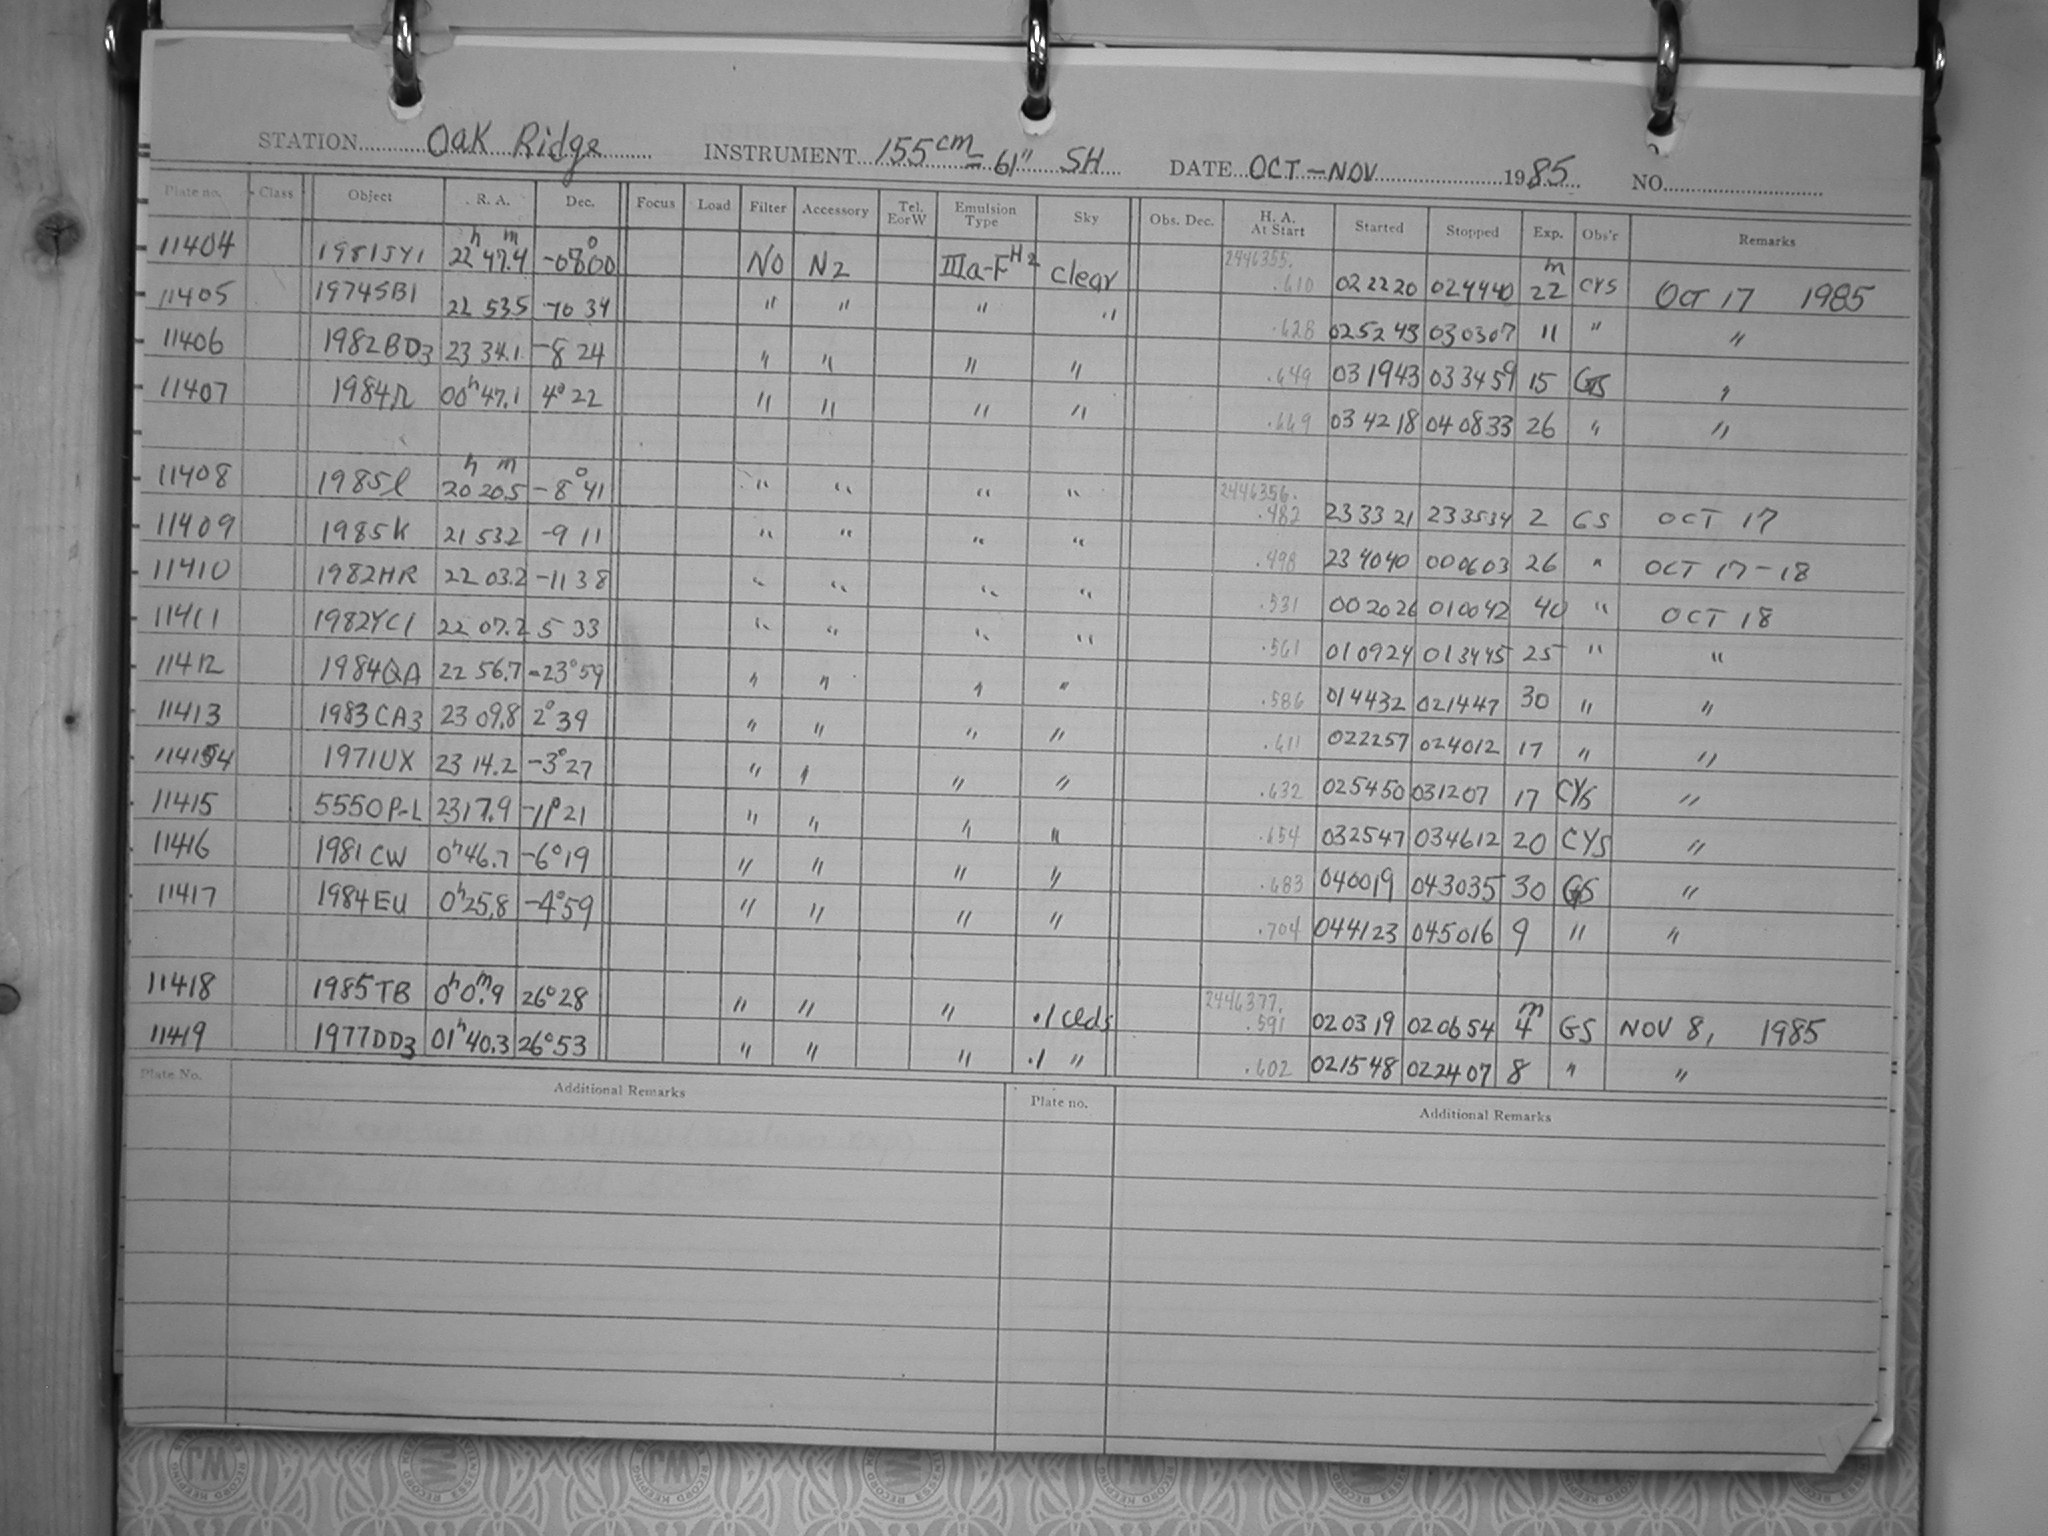 STATION Oak Ridge INSTRUMENT 155cm = 61" SH DATE OCT-NOV 1985 NO.
Plate no. Class Object R. A. Dec. Focus Load Filter Accessory Tel. E or W Emulsion Type Sky Obs. Dec. H. A. At Start Started Stopped Exp. Obs'r Remarks
11404 1981SY1 22h 47.4m -08°00 NO N2 IIIa-F H2 clear 2446355. .610 022220 024440 22m CYS OCT 17 1985
11405 1974SB1 22 535 -10 34 " " " " .628 025243 030307 11 " "
11406 1982BD3 23 34.1 -8 24 " " " " .649 031943 033459 15 GS "
11407 1984n 00h47.1 4°22 " " " " .669 034218 040833 26 " "
11408 1985l 20h 20.5m -8°41 " " " " 2446356. .482 233321 233534 2 GS OCT 17
11409 1985K 21 532 -9 11 " " " " .498 234040 000603 26 " OCT 17-18
11410 1982HR 22 03.2 -11 38 " " " " .531 002026 010042 40 " OCT 18
11411 1982YC1 22 07.2 5 33 " " " " .561 010924 013445 25 " "
11412 1984QA 22 56.7 -23°59 " " " " .586 014432 021447 30 " "
11413 1983CA3 23 09.8 2°39 " " " " .611 022257 024012 17 " "
11414 1971UX 23 14.2 -3°27 " " " " .632 025450 031207 17 CYS "
11415 5550P-L 2317.9 -1°21 " " " " .654 032547 034612 20 CYS "
11416 1981CW 0h46.7 -6°19 " " " " .683 040019 043035 30 GS "
11417 1984EU 0h25.8 -4°59 " " " " .704 044123 045016 9 " "
11418 1985TB 0h0m.9 26°28 " " " .1 clds 2446377. .591 020319 020654 4m GS NOV 8, 1985
11419 1977DD3 01h40.3 26°53 " " " .1 " .602 021548 022407 8 " "
Plate No. Additional Remarks Plate no. Additional Remarks
WJ
RECORD KEEPING